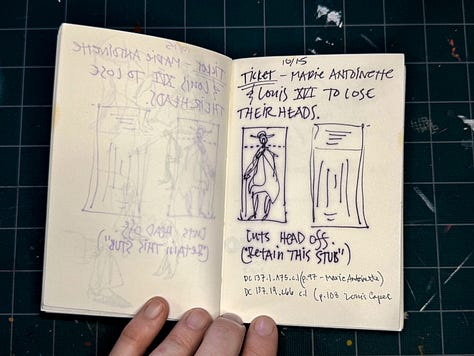 10/15
Ticket - MARIE ANTOINETTE
& LOUIS XVI TO LOSE
THEIR HEADS.
CUTS HEAD OFF.
("RETAIN THIS STUB")
DC 137.1 (p.97 - Marie Antoinette)
DC 137.19 (p.108 Louis Capet